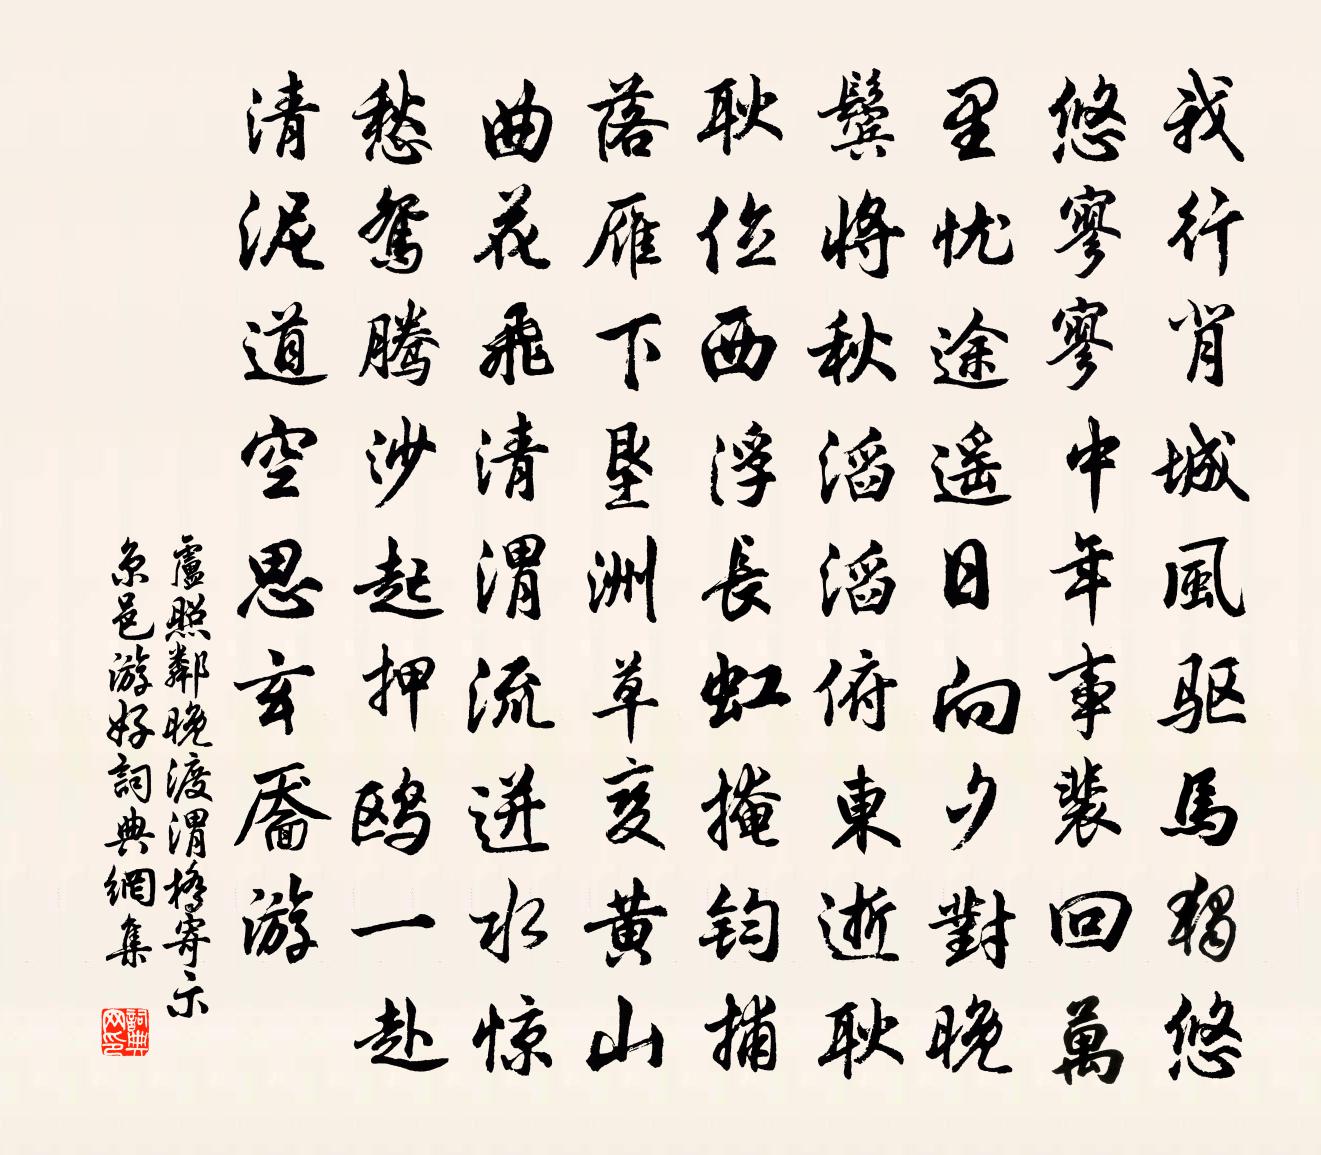 我行肖城風驱馬獨悠
悠寥寥中年事裴回萬
里忧途遥日向夕對晚
鬓將秋滔滔俯東逝耿
耿位西浮長虹掩钧捕
落雁下垦洲草变黄山
曲花飛清渭流迸水惊
愁駕腾沙起押鸥一赴
清泥道空思玄靥游
盧照鄰晚渡渭橋寄示
京邑游好詞典網集
詞典
网印